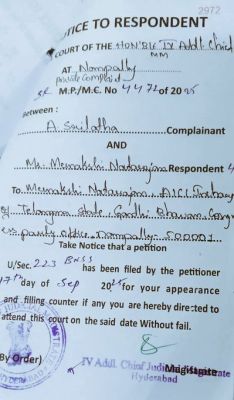 2972
NOTICE TO RESPONDENT
COURT OF THE HON'BLE IV Addl. Chief
MM
AT Nampally
Private Complaint
SR M.P./M.C. No 4472 of 2025
Between :
A. Srilatha Complainant
AND
Ms. Meenakshi Natarajan Respondent 4
To Meenakshi Natarajan, AICC Incharge
of Telangana State, Gandhi Bhavan, Congr
ess party office, Nampally - 500001.
Take Notice that a petition
U/Sec. 223 BNSS has been filed by the petitioner
17th day of Sep 2025 for your appearance
and filling counter if any you are hereby directed to
attend this court on the said date Without fail.
(By Order)
Magistrate
IV Addl. Chief Judicial Magistrate
Hyderabad